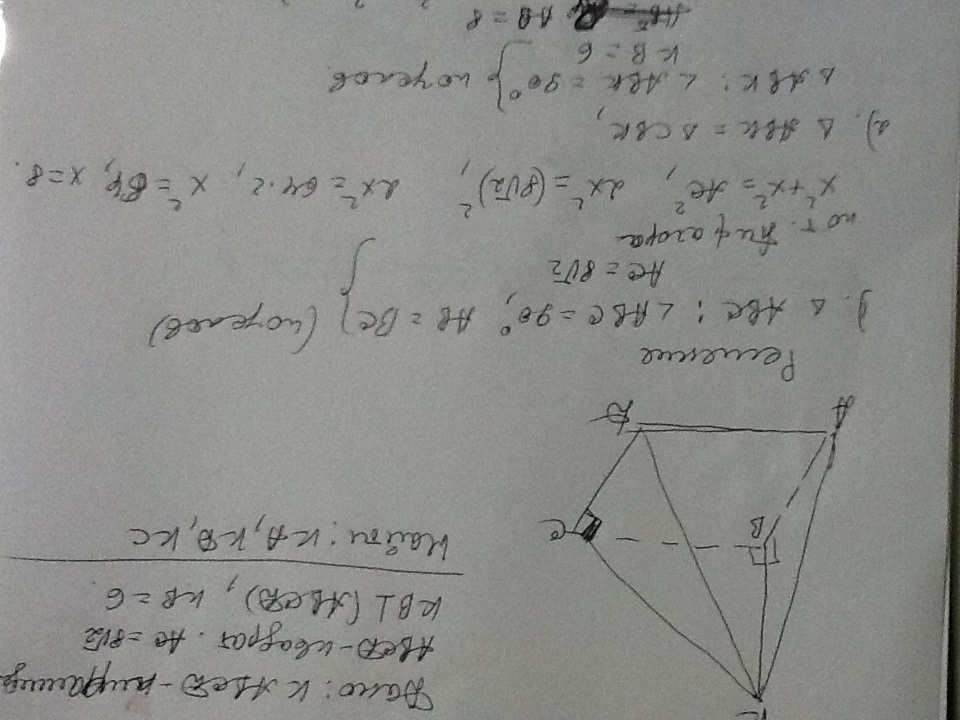 Дано: KABCD - пирамида
ABCD - квадрат. AC = 8√2
KB ⊥ (ABCD), KB = 6
Найти: KA, KD, KC
K
B
C
A
D
Решение
1). Δ ABC: ∠ABC = 90°, AB = BC} (по услов)
AC = 8√2
по т. Пифагора
x² + x² = AC², 2x² = (8√2)², 2x² = 64·2, x² = 64, x = 8.
2). Δ ABK = Δ CBK,
Δ ABK: ∠ABK = 90° } по услов.
KB = 6
AB = 8